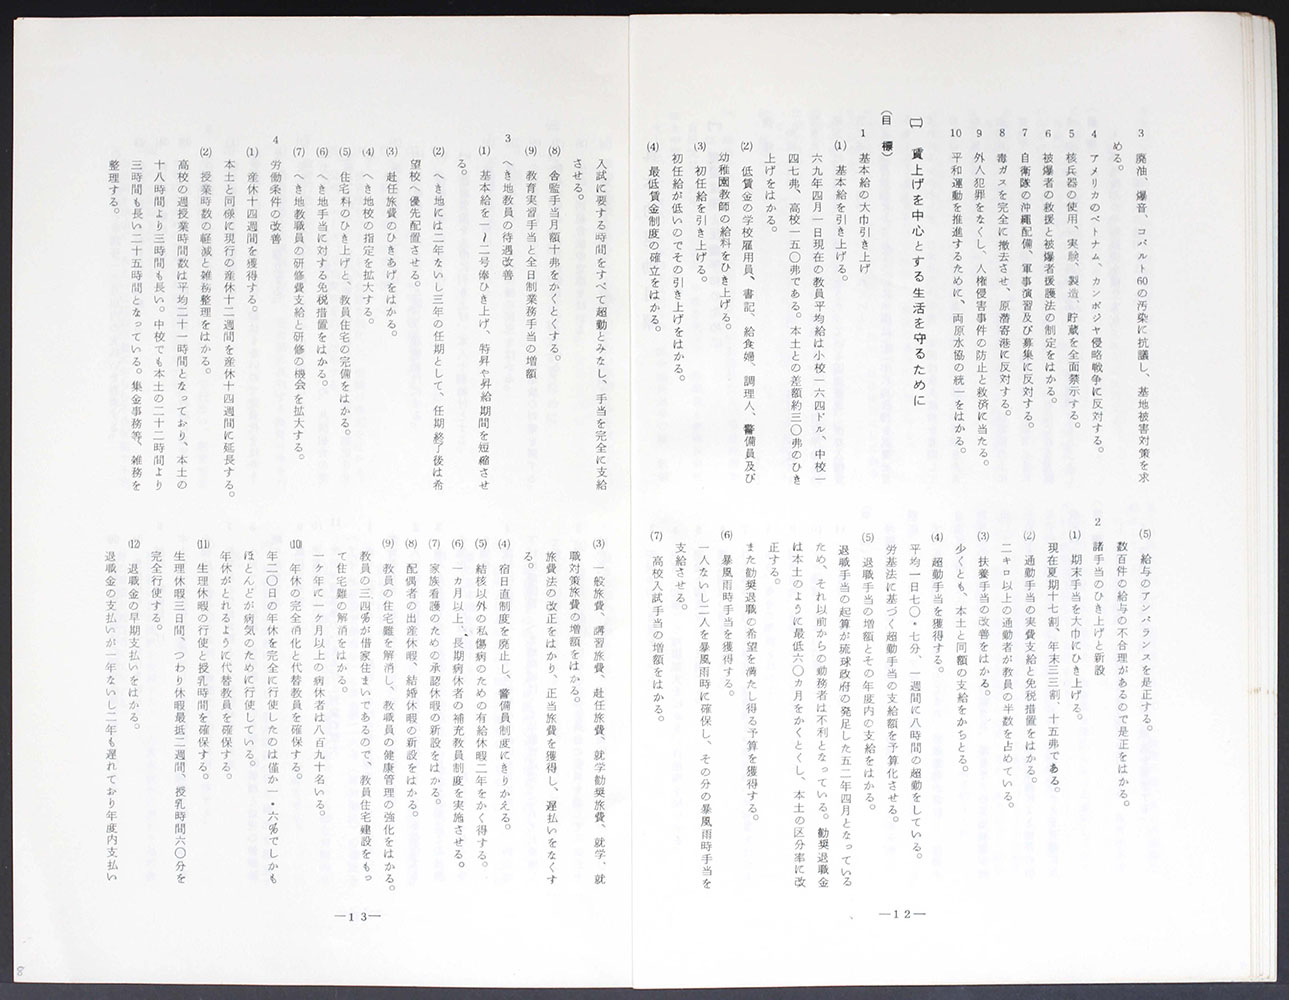 3 廃油、爆音、コバルト60の汚染に抗議し、基地被害対策を求
める。
4 アメリカのベトナム、カンボジヤ侵略戦争に反対する。
5 核兵器の使用、実験、製造、貯蔵を全面禁示する。
6 被爆者の救援と被爆者援護法の制定をはかる。
7 自衛隊の沖縄配備、軍事演習及び募集に反対する。
8 毒ガスを完全に撤去させ、原潜寄港に反対する。
9 外人犯罪をなくし、人権侵害事件の防止と救済に当たる。
10 平和運動を推進するために、両原水協の統一をはかる。
㈡ 賃上げを中心とする生活を守るために
(目 標)
1 基本給の大巾引き上げ
(1) 基本給を引き上げる。
六九年四月一日現在の教員平均給は小校一六四ドル、中校一
四七弗、高校一五〇弗である。本土との差額約三〇弗のひき
上げをはかる。
(2) 低賃金の学校雇用員、書記、給食婦、調理人、警備員及び
幼稚園教師の給料をひき上げる。
(3) 初任給を引き上げる。
初任給が低いのでその引き上げをはかる。
(4) 最低賃金制度の確立をはかる。
(5) 給与のアンバランスを是正する。
数百件の給与の不合理があるので是正をはかる。
2 諸手当のひき上げと新設
(1) 期末手当を大巾にひき上げる。
現在夏期十七割、年末三三割、十五弗である。
(2) 通勤手当の実費支給と免税措置をはかる。
二キロ以上の通勤者が教員の半数を占めている。
(3) 扶養手当の改善をはかる。
少くとも、本土と同額の支給をかちとる。
(4) 超勤手当を獲得する。
平均一日七〇・七分、一週間に八時間の超勤をしている。
労基法に基づく超勤手当の支給額を予算化させる。
(5) 退職手当の増額とその年度内の支給をはかる。
退職手当の起算が琉球政府の発足した五二年四月となっている
ため、それ以前からの勤務者は不利となっている。勧奨退職金
は本土のように最低六〇カ月をかくとくし、本土の区分率に改
正する。
また勧奨退職の希望を満たし得る予算を獲得する。
(6) 暴風雨時手当を獲得する。
一人ないし二人を暴風雨時に確保し、その分の暴風雨時手当を
支給させる。
(7) 高校入試手当の増額をはかる。
—12—
入試に要する時間をすべて超勤とみなし、手当を完全に支給
させる。
(8) 舎監手当月額十弗をかくとくする。
(9) 教育実習手当と全日制業務手当の増額
3 へき地教員の待遇改善
(1) 基本給を一〜二号俸ひき上げ、特昇や昇給期間を短縮させ
る。
(2) へき地には二年ないし三年の任期として、任期終了後は希
望校へ優先配置させる。
(3) 赴任旅費のひきあげをはかる。
(4) へき地校の指定を拡大する。
(5) 住宅料のひき上げと、教員住宅の完備をはかる。
(6) へき地手当に対する免税措置をはかる。
(7) へき地教職員の研修費支給と研修の機会を拡大する。
4 労働条件の改善
(1) 産休十四週間を獲得する。
本土と同様に現行の産休十二週間を産休十四週間に延長する。
(2) 授業時数の軽減と雑務整理をはかる。
高校の週授業時間数は平均二十一時間となっており、本土の
十八時間より三時間も長い。中校でも本土の二十二時間より
三時間も長い二十五時間となっている。集金事務等、雑務を
整理する。
(3) 一般旅費、講習旅費、赴任旅費、就学勧奨旅費、就学、就
職対策旅費の増額をはかる。
旅費法の改正をはかり、正当旅費を獲得し、遅払いをなくす
る。
(4) 宿日直制度を廃止し、警備員制度にきりかえる。
(5) 結核以外の私傷病のための有給休暇二年をかく得する。
(6) 一カ月以上、長期病休者の補充教員制度を実施させる。
(7) 家族看護のための承認休暇の新設をはかる。
(8) 配偶者の出産休暇、結婚休暇の新設をはかる。
(9) 教員の住宅難を解消し、教職員の健康管理の強化をはかる。
教員の三四%が借家住まいであるので、教員住宅建設をもっ
て住宅難の解消をはかる。
一ケ年に一ケ月以上の病休者は八百九十名いる。
(10) 年休の完全消化と代替教員を確保する。
年二〇日の年休を完全に行使したのは僅か一・六%でしかも
ほとんどが病気のために行使している。
年休がとれるように代替教員を確保する。
(11) 生理休暇の行使と授乳時間を確保する。
生理休暇三日間、つわり休暇最抵二週間、授乳時間六〇分を
完全行使する。
(12) 退職金の早期支払いをはかる。
退職金の支払いが一年ないし二年も遅れており年度内支払い
—13—
8